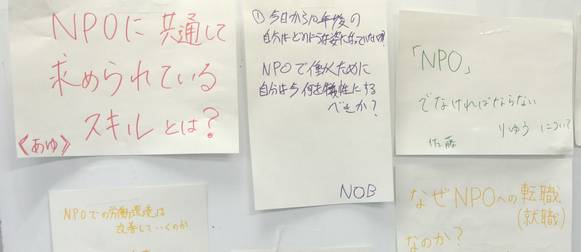 NPOに共通して
求められている
スキルとは?
《あゆ》
① 今日から10年後の
自分はどのような姿になっていたい?
NPOで働くために
自分は今何を犠牲にする
べきか?
NOB
「NPO」
でなければならない
りゆうについて
佐藤
NPOでの労働環境は
改善していくのか
なぜNPOへの転職
(就職)
なのか?